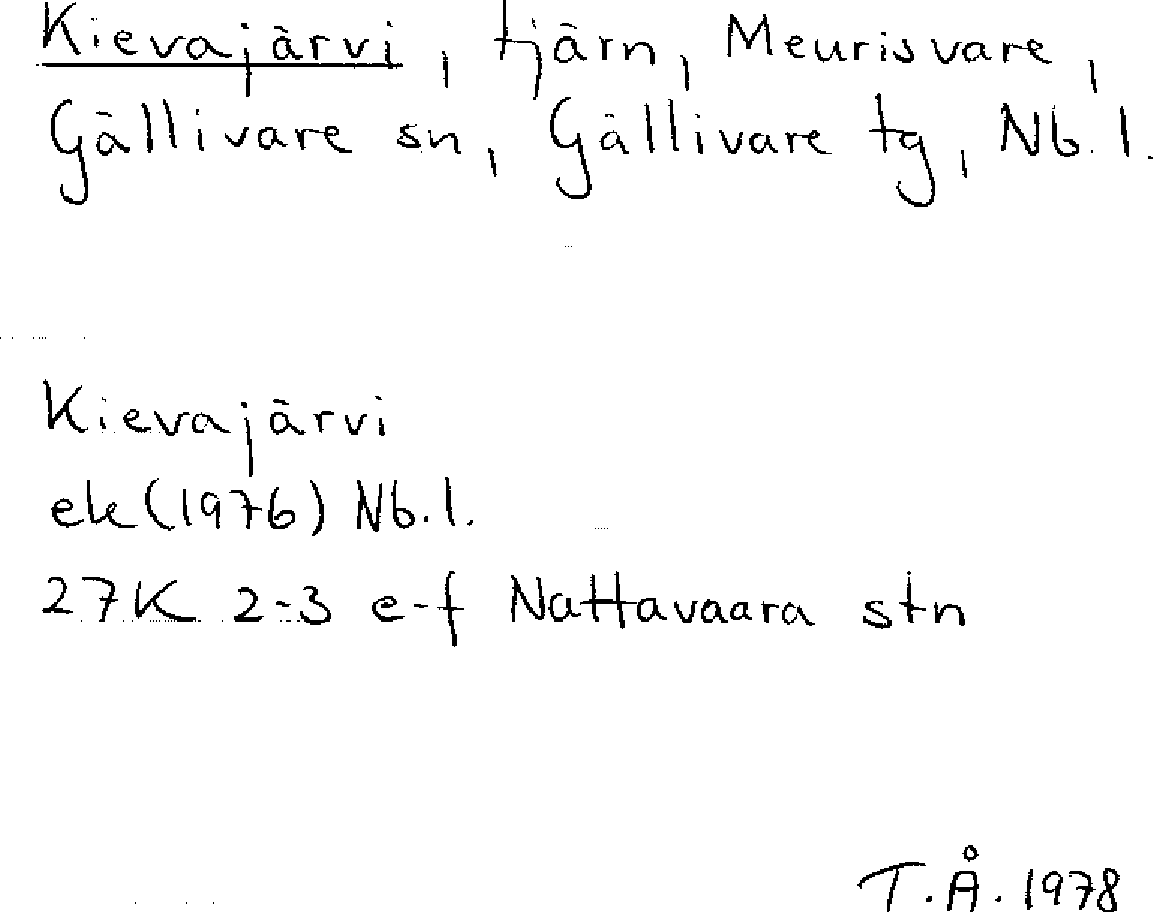 Kievajärvi, tjärn, Meurisvare,
Gällivare sn, Gällivare tg, Nb.l.
Kievajärvi
ek(1976) Nb.l.
27K 2-3 e-f Nattavaara stn
T.Å.1978